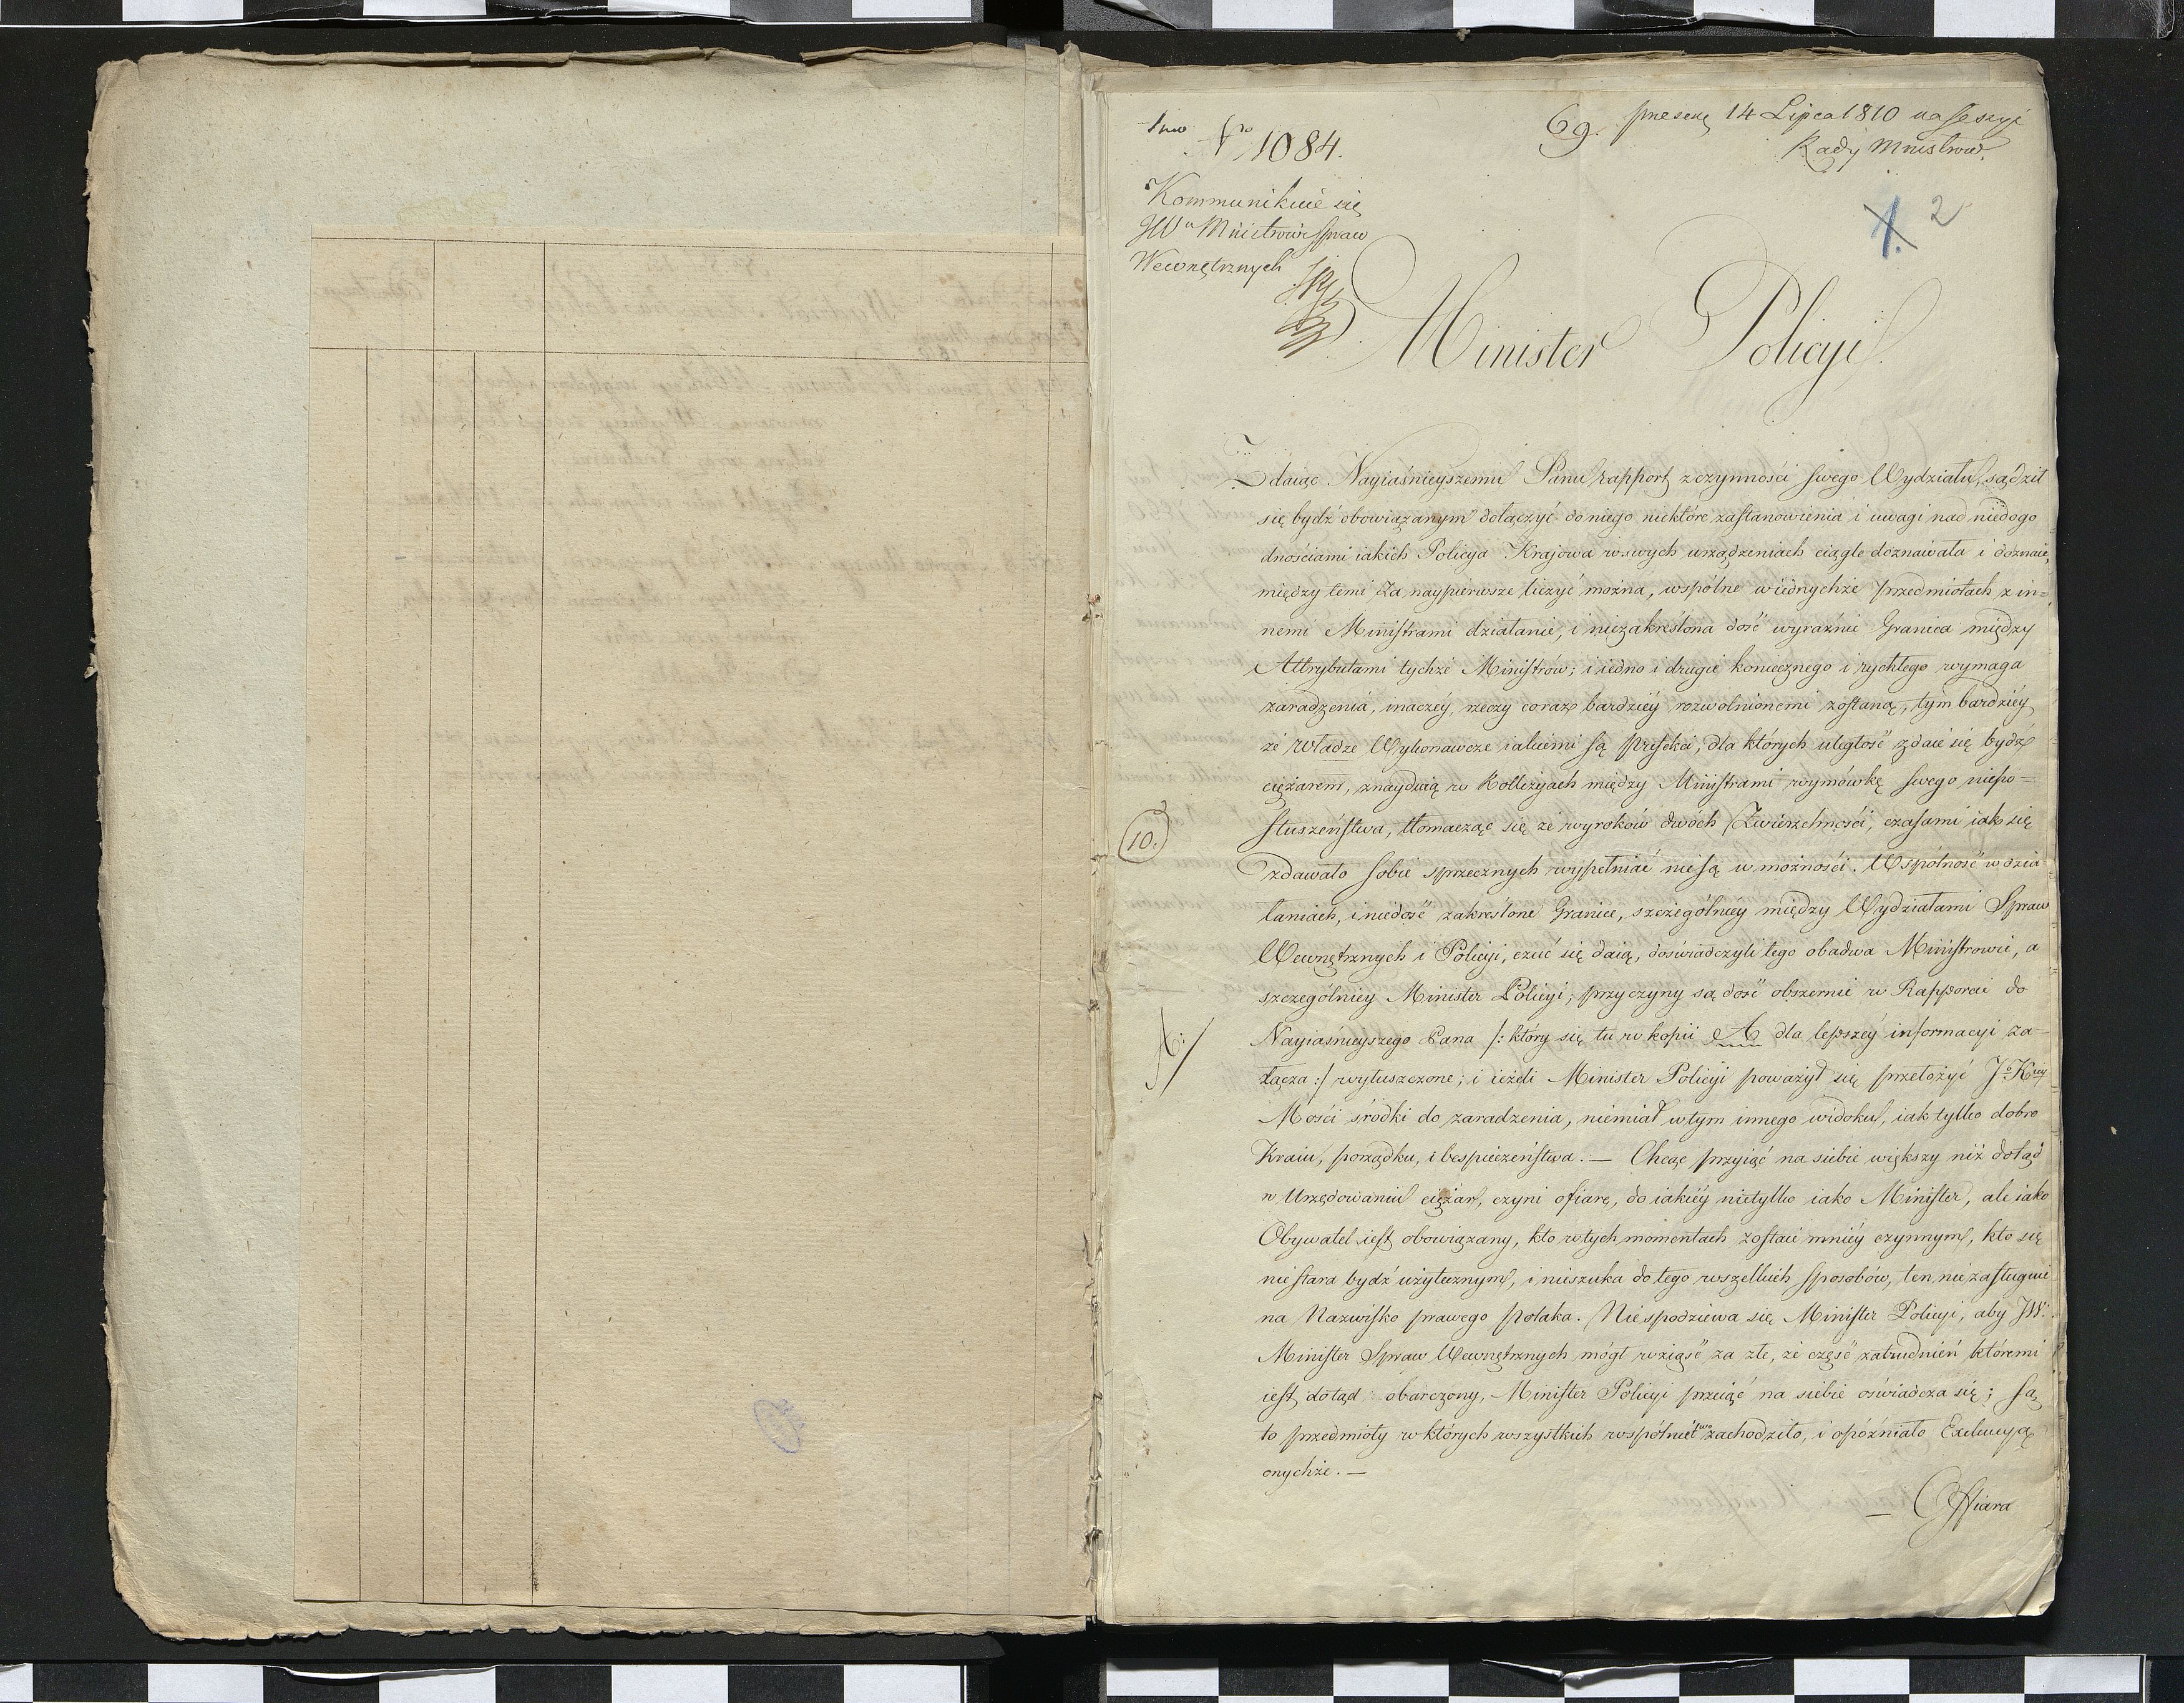 69. 14 Lipca 1810 na Sessyi
Rady Mnistrow.
1084.
2
Kommunikuie się
JWu Ministrowi Spraw
Wewnętrznych
Minister Policyi.
Zdaiąc Nayiaśnieyszemu Panu rapport z czynności swego Wydziału, sądził
się bydź obowiązanym dołączyć do niego niektóre zastanowienia i uwagi nad niedogo
dnościami iakich Policya Krajowa w swych urządzeniach ciągle doznawała i doznaie,
między temi za naypierwsze liczyć można, wspólne w iednychże przedmiotach z in=
nemi Ministrami działanie, i niezakreślona dość wyraźnie Granica między
Attrybutami tychże Ministrów; i iedno i drugie koniecznego i rychłego wymaga
zaradzenia, inaczéy, rzeczy coraz bardziéy rozwolnionemi zostaną, tym bardziéy
że władze Wykonawcze iakiemi są Prefekci, dla których uległość zdaie się bydź
ciężarem, znayduią w Kollizyach między Ministrami wymówkę swego niepo=
słuszeństwa, tłomacząc się że wyroków dwóch Zwierzchności, czasami iak się
10.
zdawało sobie sprzecznych wypełniać nie są w możności. Wspólność w dzia
łaniach, i niedość zakreślone Granice, szczególniéy między Wydziałami Spraw
Wewnętrznych i Policyi, czuć się daią, doświadczyli tego obadwa Ministrowie, a
szczególniey Minister Policyi; przyczyny są dość obszernie w Rapporcie do
Nayiaśnieyszego Pana /: który się tu w kopii A dla lepszéy informacyi za=
A:/
łącza :/ wyłuszczone; i ieżeli Minister Policyi poważył się przełożyć Jo Kiéy
Mości śródki do zaradzenia, niemiał w tym innego widoku, iak tylko dobro
Kraiu, porządku, i bespieczeństwa. — Chcąc przyiąć na siebie większy niż dotąd
w Urzędowaniu ciężar, czyni ofiarę, do iakiéy nietylko iako Minister, ale iako
Obywatel iest obowiązany, kto w tych momentach zostaie mniéy czynnym, kto się
niestara bydź użytecznym, i nieszuka do tego wszelkich sposobów, ten nie zasługuie
na Nazwisko prawego Polaka. Nie spodziewa się Minister Policyi, aby JW.
Minister Spraw Wewnętrznych mógł wziąść za złe, że część zatrudnień któremi
iest dotąd obarczony, Minister Policyi przyiąć na siebie oświadcza się; są
to przedmioty w których wszystkich wspólnictwo zachodziło, i opóźniało Exekucyą
onychże. —
— Offiara